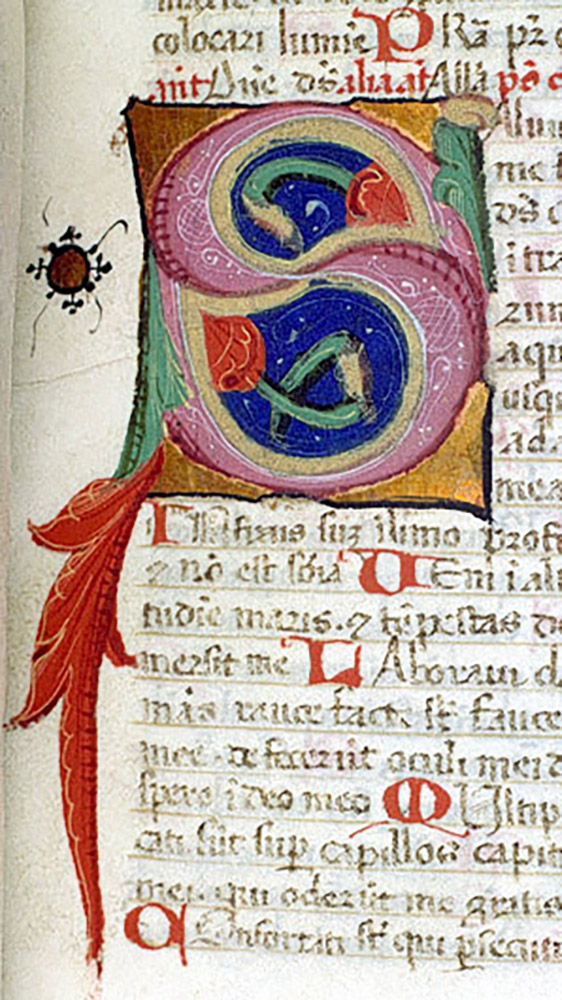 colocari lumīe PRā pr̄ c
ant Dn̄e d̄s aliaat Allā pō c
S Aluu
me f
d̄s
itra
zum
aqu
usq
ada
mea
INfixus suꝫ ī limo prof
⁊ nō est sb̄ia UEni ī alt
tudīe maris ⁊ tēpestas de
mersit me LAboraui d
mās rauce facte st̄ fauce
mee defecerūt oculi mei d
spero ī deo meo MUltip
cati sūt sup̄ capillos capit
mei qui oderūt me gratis
COnfortati st̄ qui ꝑsecuti